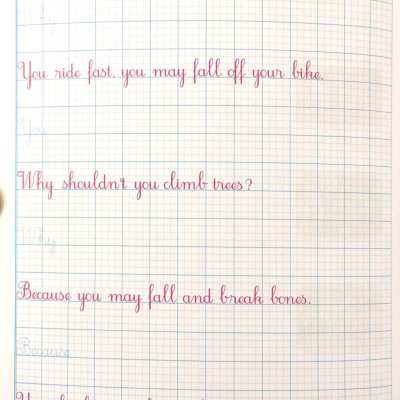 You ride fast, you may fall off your bike.
You
Why shouldn't you climb trees?
Why
Because you may fall and break bones.
Because